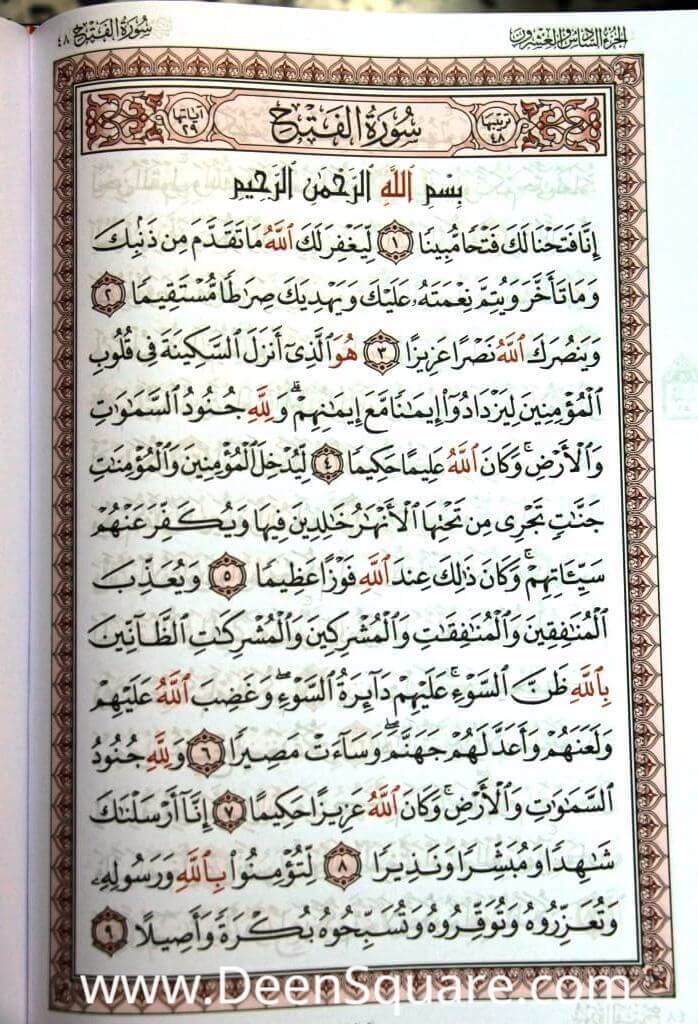 الجزء السادس والعشرون
سورة الفتح ٤٨
ترتيبها ٤٨
سُورَةُ الفَتْحِ
آياتها ٢٩
بِسْمِ اللَّهِ الرَّحْمَٰنِ الرَّحِيمِ
إِنَّا فَتَحْنَا لَكَ فَتْحًا مُّبِينًا ١ لِّيَغْفِرَ لَكَ ٱللَّهُ مَا تَقَدَّمَ مِن ذَنۢبِكَ
وَمَا تَأَخَّرَ وَيُتِمَّ نِعْمَتَهُۥ عَلَيْكَ وَيَهْدِيَكَ صِرَٰطًا مُّسْتَقِيمًا ٢
وَيَنصُرَكَ ٱللَّهُ نَصْرًا عَزِيزًا ٣ هُوَ ٱلَّذِىٓ أَنزَلَ ٱلسَّكِينَةَ فِى قُلُوبِ
ٱلْمُؤْمِنِينَ لِيَزْدَادُوٓا۟ إِيمَٰنًا مَّعَ إِيمَٰنِهِمْ ۗ وَلِلَّهِ جُنُودُ ٱلسَّمَٰوَٰتِ
وَٱلْأَرْضِ ۚ وَكَانَ ٱللَّهُ عَلِيمًا حَكِيمًا ٤ لِّيُدْخِلَ ٱلْمُؤْمِنِينَ وَٱلْمُؤْمِنَٰتِ
جَنَّٰتٍ تَجْرِى مِن تَحْتِهَا ٱلْأَنْهَٰرُ خَٰلِدِينَ فِيهَا وَيُكَفِّرَ عَنْهُمْ
سَيِّـَٔاتِهِمْ ۚ وَكَانَ ذَٰلِكَ عِندَ ٱللَّهِ فَوْزًا عَظِيمًا ٥ وَيُعَذِّبَ
ٱلْمُنَٰفِقِينَ وَٱلْمُنَٰفِقَٰتِ وَٱلْمُشْرِكِينَ وَٱلْمُشْرِكَٰتِ ٱلظَّآنِّينَ
بِٱللَّهِ ظَنَّ ٱلسَّوْءِ ۚ عَلَيْهِمْ دَآئِرَةُ ٱلسَّوْءِ ۖ وَغَضِبَ ٱللَّهُ عَلَيْهِمْ
وَلَعَنَهُمْ وَأَعَدَّ لَهُمْ جَهَنَّمَ ۖ وَسَآءَتْ مَصِيرًا ٦ وَلِلَّهِ جُنُودُ
ٱلسَّمَٰوَٰتِ وَٱلْأَرْضِ ۚ وَكَانَ ٱللَّهُ عَزِيزًا حَكِيمًا ٧ إِنَّآ أَرْسَلْنَٰكَ
شَٰهِدًا وَمُبَشِّرًا وَنَذِيرًا ٨ لِّتُؤْمِنُوا۟ بِٱللَّهِ وَرَسُولِهِۦ
وَتُعَزِّرُوهُ وَتُوَقِّرُوهُ وَتُسَبِّحُوهُ بُكْرَةً وَأَصِيلًا ٩
www.DeenSquare.com